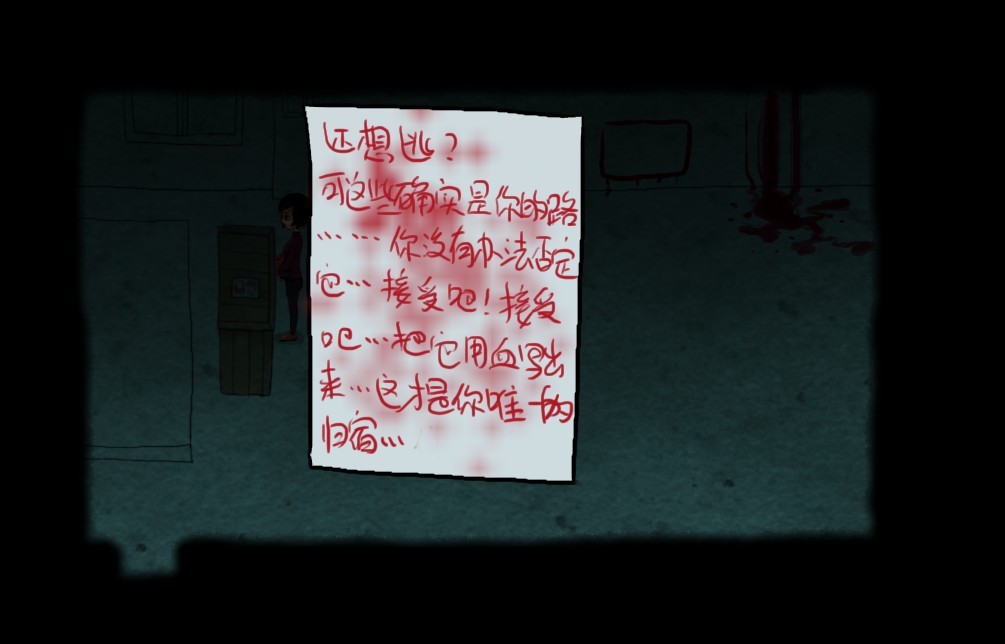 还想逃？
可这些确实是你的路
……你没有办法否定
它…接受吧！接受
吧…把它用血写出
来…这才是你唯一的
归宿…